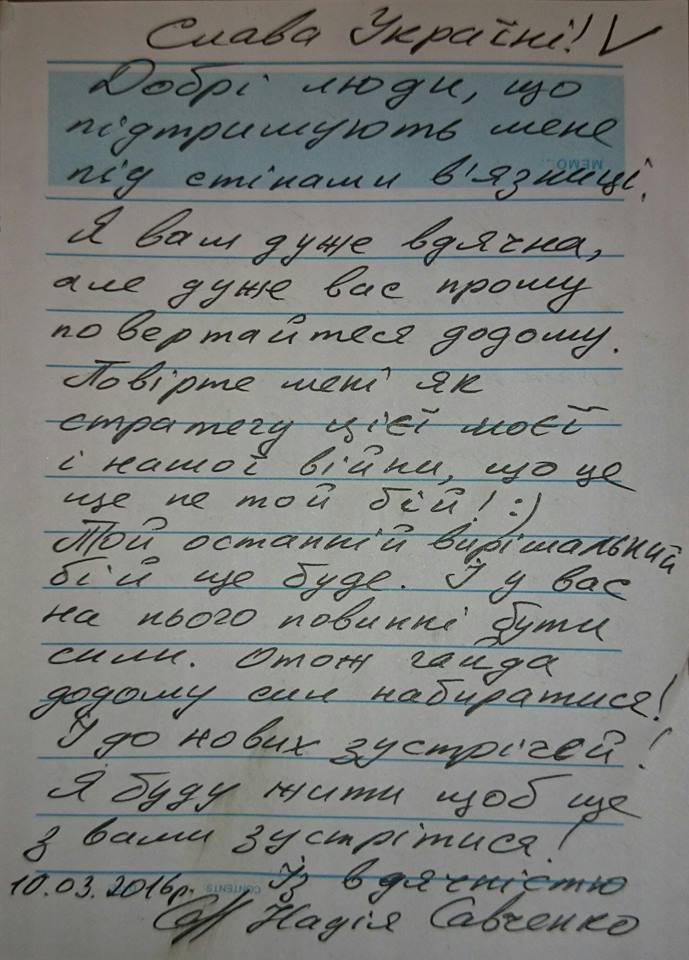 Слава Україні! V
Добрі люди, що
підтримують мене
MEMO...
під стінами в'язниці,
Я вам дуже вдячна,
але дуже вас прошу
повертайтеся додому.
Повірте мені як
стратегу цієї моєї
і нашої війни, що це
ще не той бій! :)
Той останній вирішальний
бій ще буде. І у вас
на нього повинні бути
сили. Отож гайда
додому сил набиратися!
І до нових зустрічей!
Я буду жити щоб ще
з вами зустрітися!
10.03.2016р. CONTENTS Із вдячністю
Надія Савченко